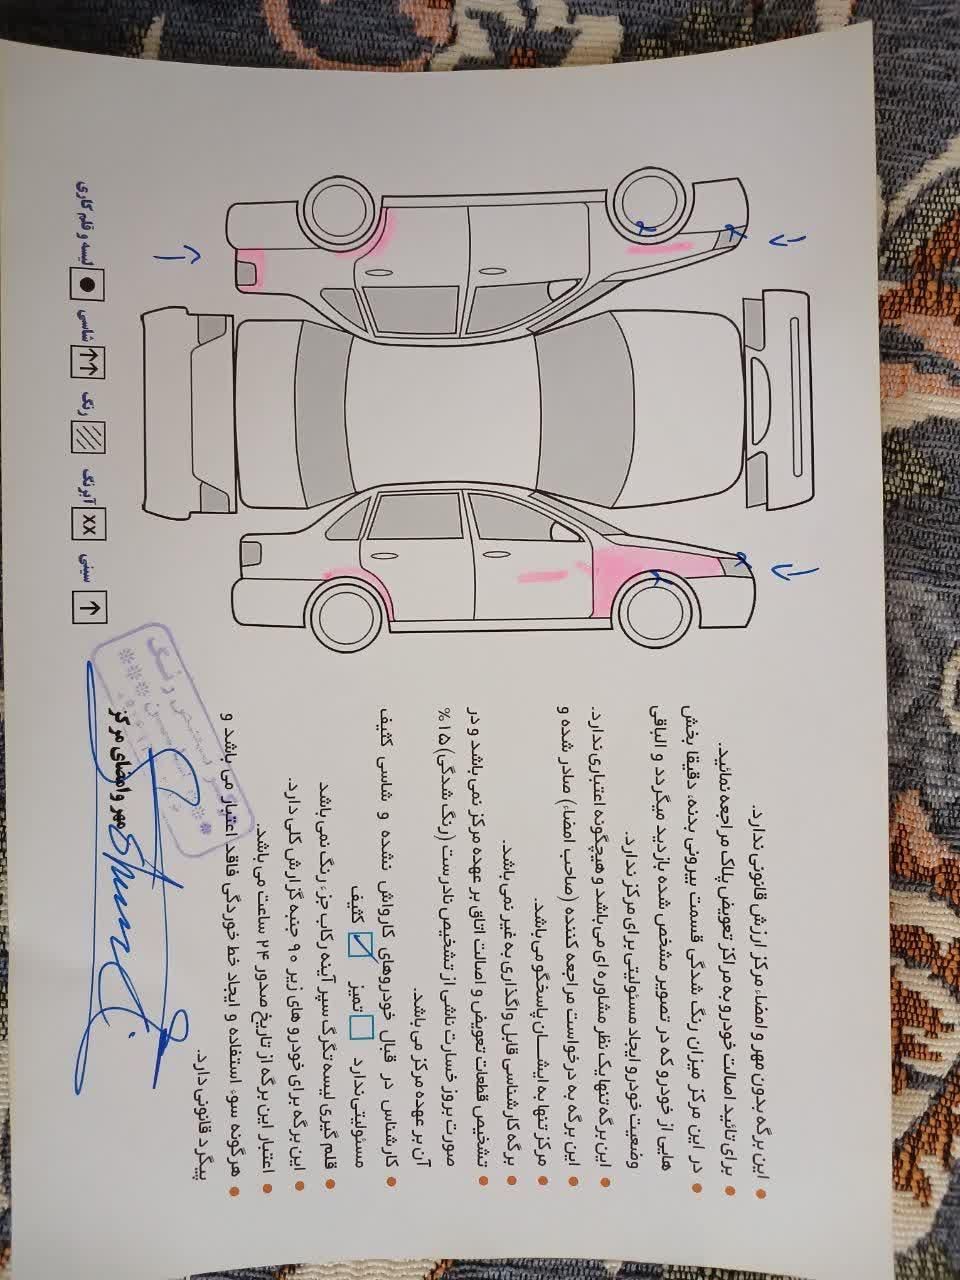 این برگه بدون مهر و امضاء مرکز ارزش قانونی ندارد.
برای تائید اصالت خودرو به مراکز تعویض پلاک مراجعه نمائید.
در این مرکز میزان رنگ شدگی قسمت بیرونی بدنه، دقیقا بخش
هایی از خودرو که در تصویر مشخص شده بازدید میگردد و الباقی
وضعیت خودرو ایجاد مسئولیتی برای مرکز ندارد.
این برگه تنها یک نظر مشاوره ای می باشد و هیچگونه اعتباری ندارد.
این برگه به درخواست مراجعه کننده (صاحب امضاء) صادر شده و
مرکز تنها به ایشان پاسخگو می باشد.
برگه کارشناسی قابل واگذاری به غیر نمی باشد.
تشخیص قطعات تعویض و اصالت اتاق بر عهده مرکز نمی باشد و در
صورت بروز خسارت ناشی از تشخیص نادرست (رنگ شدگی) ۱۵%
آن بر عهده مرکز می باشد.
کارشناس در قبال خودروهای کارواش نشده و شاسی کثیف
مسئولیتی ندارد تمیز کثیف
قلم گیری لیسه تگرگ سپر آینه رکاب جزء رنگ نمی باشد
این برگه برای خودرو های زیر ۹۰ جنبه گزارش کلی دارد.
اعتبار این برگه از تاریخ صدور ۲۴ ساعت می باشد.
هرگونه سوء استفاده و ایجاد خط خوردگی فاقد اعتبار می باشد و
پیگرد قانونی دارد.
مهر و امضای مرکز
لیسه و قلم کاری
شاسی
رنگ
آبرنگ XX
سینی